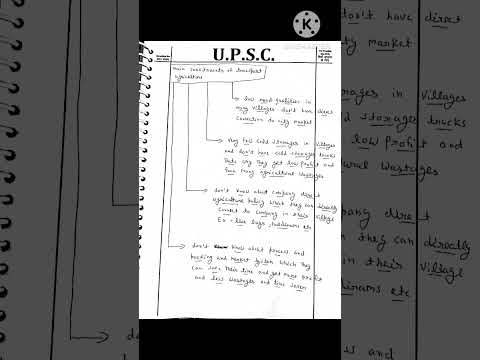 U.P.S.C.
main constraints of transport
agriculture
less road facilities in
many villages don't have direct
connection to city market
Very few cold storages in villages
and don't have cold storages trucks
that's why they get low profit and
face many agricultural wastages
don't know about company direct
agriculture policy what they can directly
connect to company in their village
Ex - like lays, haldirams etc
don't know about process and
packing and market system which they
can save their time and get more profit
and less wastages and time taken
don't have direct
city market
storages in villages
d storages trucks
low profit and
ural wastages
pany direct
they can directly
in their village
dirams etc
ss and